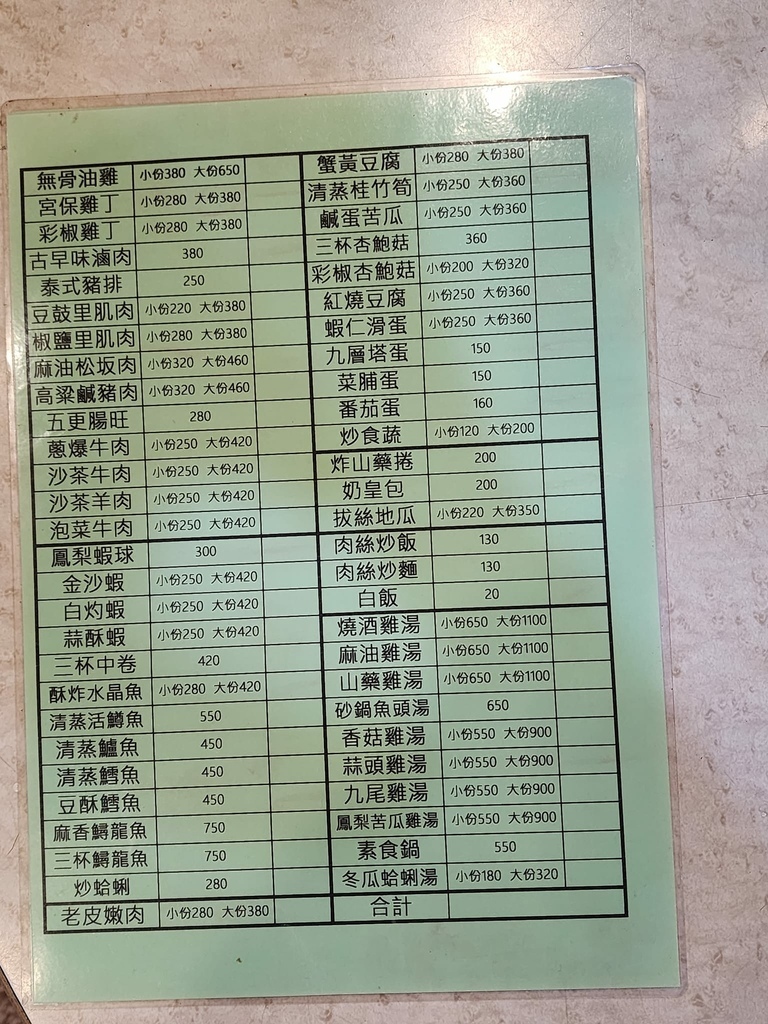 無骨油雞 小份380 大份650
宮保雞丁 小份280 大份380
彩椒雞丁 小份280 大份380
古早味滷肉 380
泰式豬排 250
豆鼓里肌肉 小份220 大份380
椒鹽里肌肉 小份280 大份380
麻油松坂肉 小份320 大份460
高粱鹹豬肉 小份320 大份460
五更腸旺 280
蔥爆牛肉 小份250 大份420
沙茶牛肉 小份250 大份420
沙茶羊肉 小份250 大份420
泡菜牛肉 小份250 大份420
鳳梨蝦球 300
金沙蝦 小份250 大份420
白灼蝦 小份250 大份420
蒜酥蝦 小份250 大份420
三杯中卷 420
酥炸水晶魚 小份280 大份420
清蒸活鱒魚 550
清蒸鱸魚 450
清蒸鱈魚 450
豆酥鱈魚 450
麻香鱘龍魚 750
三杯鱘龍魚 750
炒蛤蜊 280
老皮嫩肉 小份280 大份380
蟹黃豆腐 小份280 大份380
清蒸桂竹筍 小份250 大份360
鹹蛋苦瓜 小份250 大份360
三杯杏鮑菇 360
彩椒杏鮑菇 小份200 大份320
紅燒豆腐 小份250 大份360
蝦仁滑蛋 小份250 大份360
九層塔蛋 150
菜脯蛋 150
番茄蛋 160
炒食蔬 小份120 大份200
炸山藥捲 200
奶皇包 200
拔絲地瓜 小份220 大份350
肉絲炒飯 130
肉絲炒麵 130
白飯 20
燒酒雞湯 小份650 大份1100
麻油雞湯 小份650 大份1100
山藥雞湯 小份650 大份1100
砂鍋魚頭湯 650
香菇雞湯 小份550 大份900
蒜頭雞湯 小份550 大份900
九尾雞湯 小份550 大份900
鳳梨苦瓜雞湯 小份550 大份900
素食鍋 550
冬瓜蛤蜊湯 小份180 大份320
合計